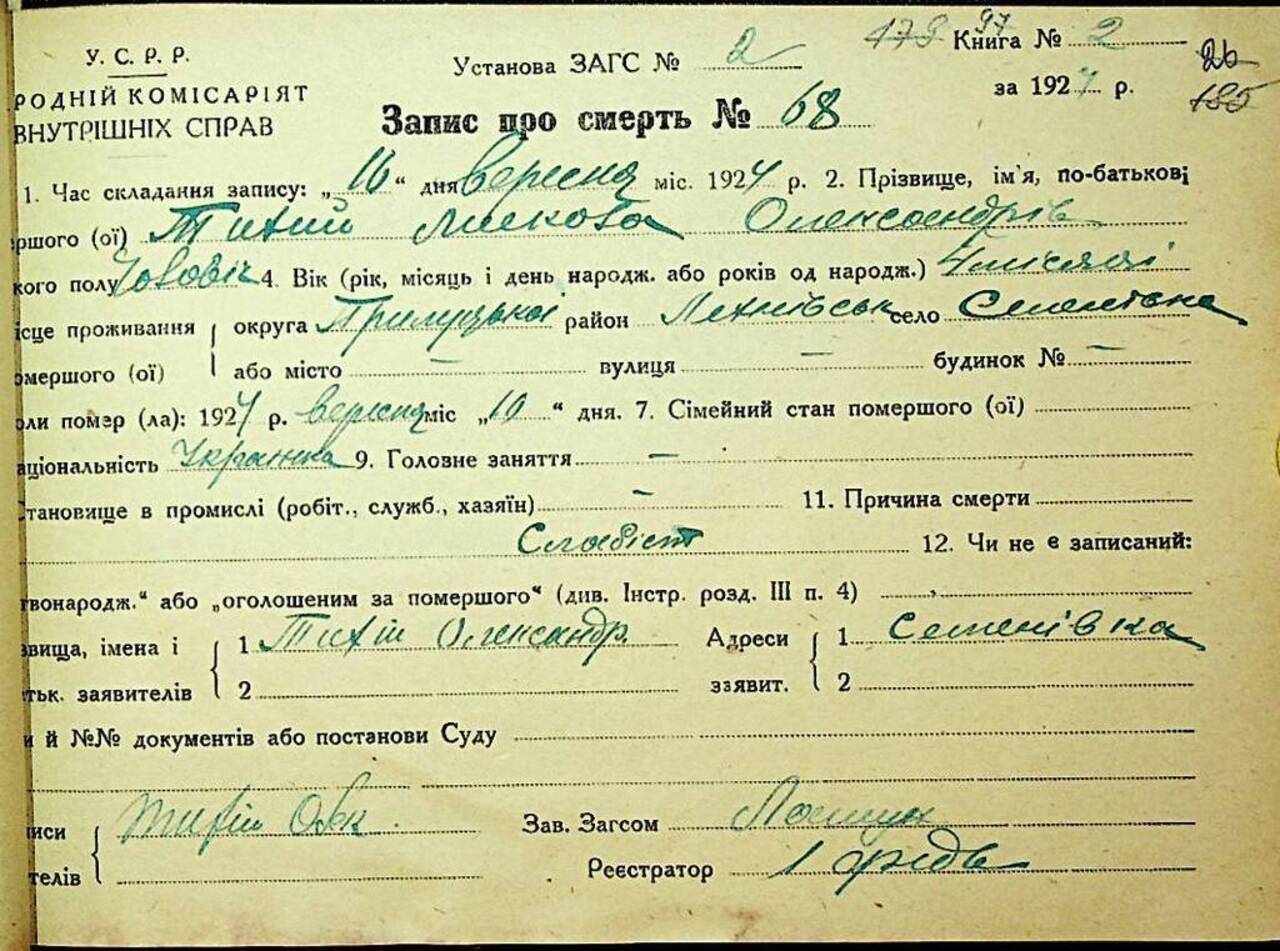 У. С. Р. Р.
РОДНІЙ КОМІСАРІЯТ
ВНУТРІШНІХ СПРАВ
Установа ЗАГС № 2
178 97 Книга № 2
26
за 1927 р.
185
Запис про смерть № 68
1. Час складання запису: „16“ дня вересня міс. 1927 р. 2. Прізвище, ім'я, по-батькові
ршого (ої) Тихий Микола Олександрів
кого полу Чоловік 4. Вік (рік, місяць і день народж. або років од народж.) місяці
ісце проживання округа Прилуцької район село Семенівка
омершого (ої) або місто — вулиця — будинок № —
оли помер (ла): 1927 р. вересня міс „10“ дня. 7. Сімейний стан помершого (ої)
аціональність Українка 9. Головне заняття —
Становище в промислі (робіт., служб., хазяїн) — 11. Причина смерти
Слабіст 12. Чи не є записаний:
твонародж.“ або „оголошеним за помершого“ (див. Інстр. розд. III п. 4)
звища, імена і 1 Тихій Олександр. Адреси 1 Семенівка
тьк. заявителів 2 ззявит. 2
и й №№ документів або постанови Суду
иси Тихій Зав. Загсом
телів Реєстратор